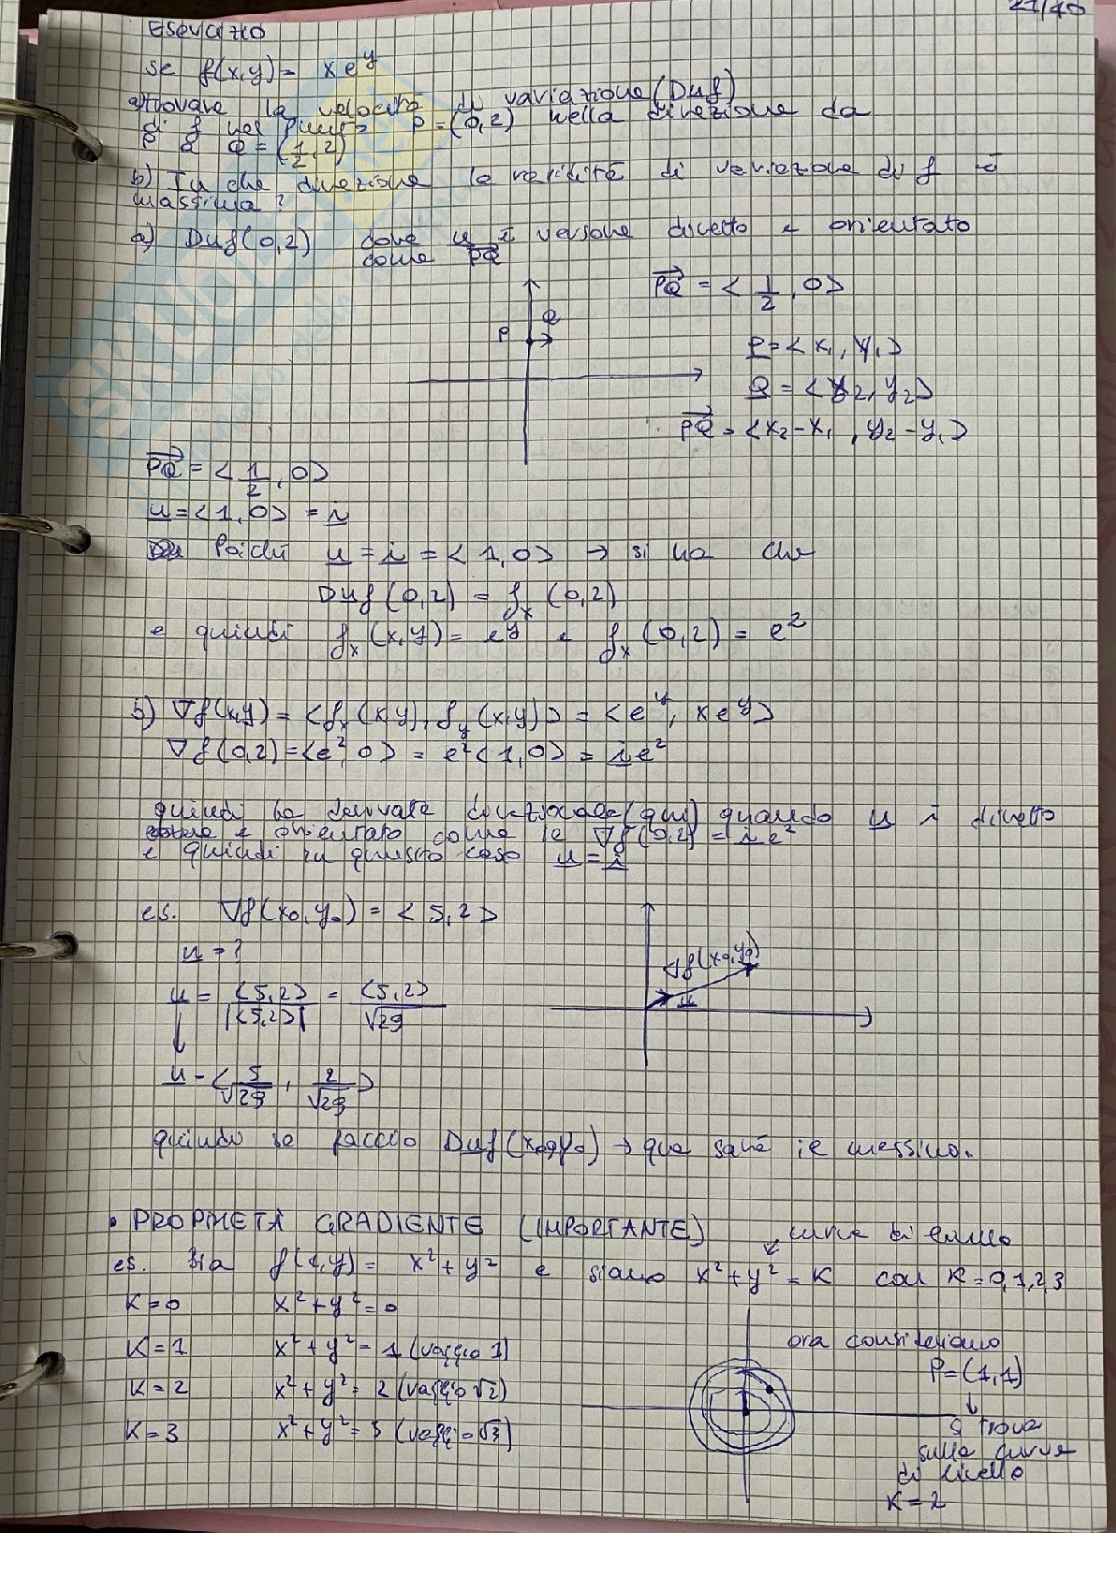 21/40
Esercizio
se f(x,y) = x e^y
a) trovare la velocità di variazione (Duf)
di f nel punto P = (0,2) nella direzione da
P a Q = (1/2, 2)
b) In che direzione la velocità di variazione di f è
massima?
a) Duf(0,2) dove u è versore diretto e orientato
come PQ
PQ = <1/2, 0>
P Q
P = <x₁, y₁>
Q = <x₂, y₂>
PQ = <x₂-x₁, y₂-y₁>
PQ = <1/2, 0>
u = <1, 0> = i
Poiché u = i = <1, 0> → si ha che
Duf(0,2) = fx(0,2)
e quindi fx(x,y) = e^y e fx(0,2) = e²
b) ∇f(x,y) = <fx(x,y), fy(x,y)> = <e^y, x e^y>
∇f(0,2) = <e², 0> = e²<1,0> = i e²
quindi la derivata direzionale quando u è diretto
e orientato come le ∇f(0,2) = i e²
e quindi in questo caso u = i
es. ∇f(x₀,y₀) = <5,2>
u = ?
∇f(x₀,y₀)
u
u = <5,2>/|<5,2>| = <5,2>/√29
↓
u = <5/√29, 2/√29>
quindi se faccio Duf(x₀,y₀) → qua sarà il massimo.
• PROPRIETÀ GRADIENTE (IMPORTANTE)
curve di livello
es. sia f(x,y) = x² + y² e siano x² + y² = K con K = 0,1,2,3
K = 0 x² + y² = 0
K = 1 x² + y² = 1 (raggio 1)
K = 2 x² + y² = 2 (raggio √2)
K = 3 x² + y² = 3 (raggio √3)
ora consideriamo
P = (1,1)
↓
si trova
sulla curva
di livello
K = 2